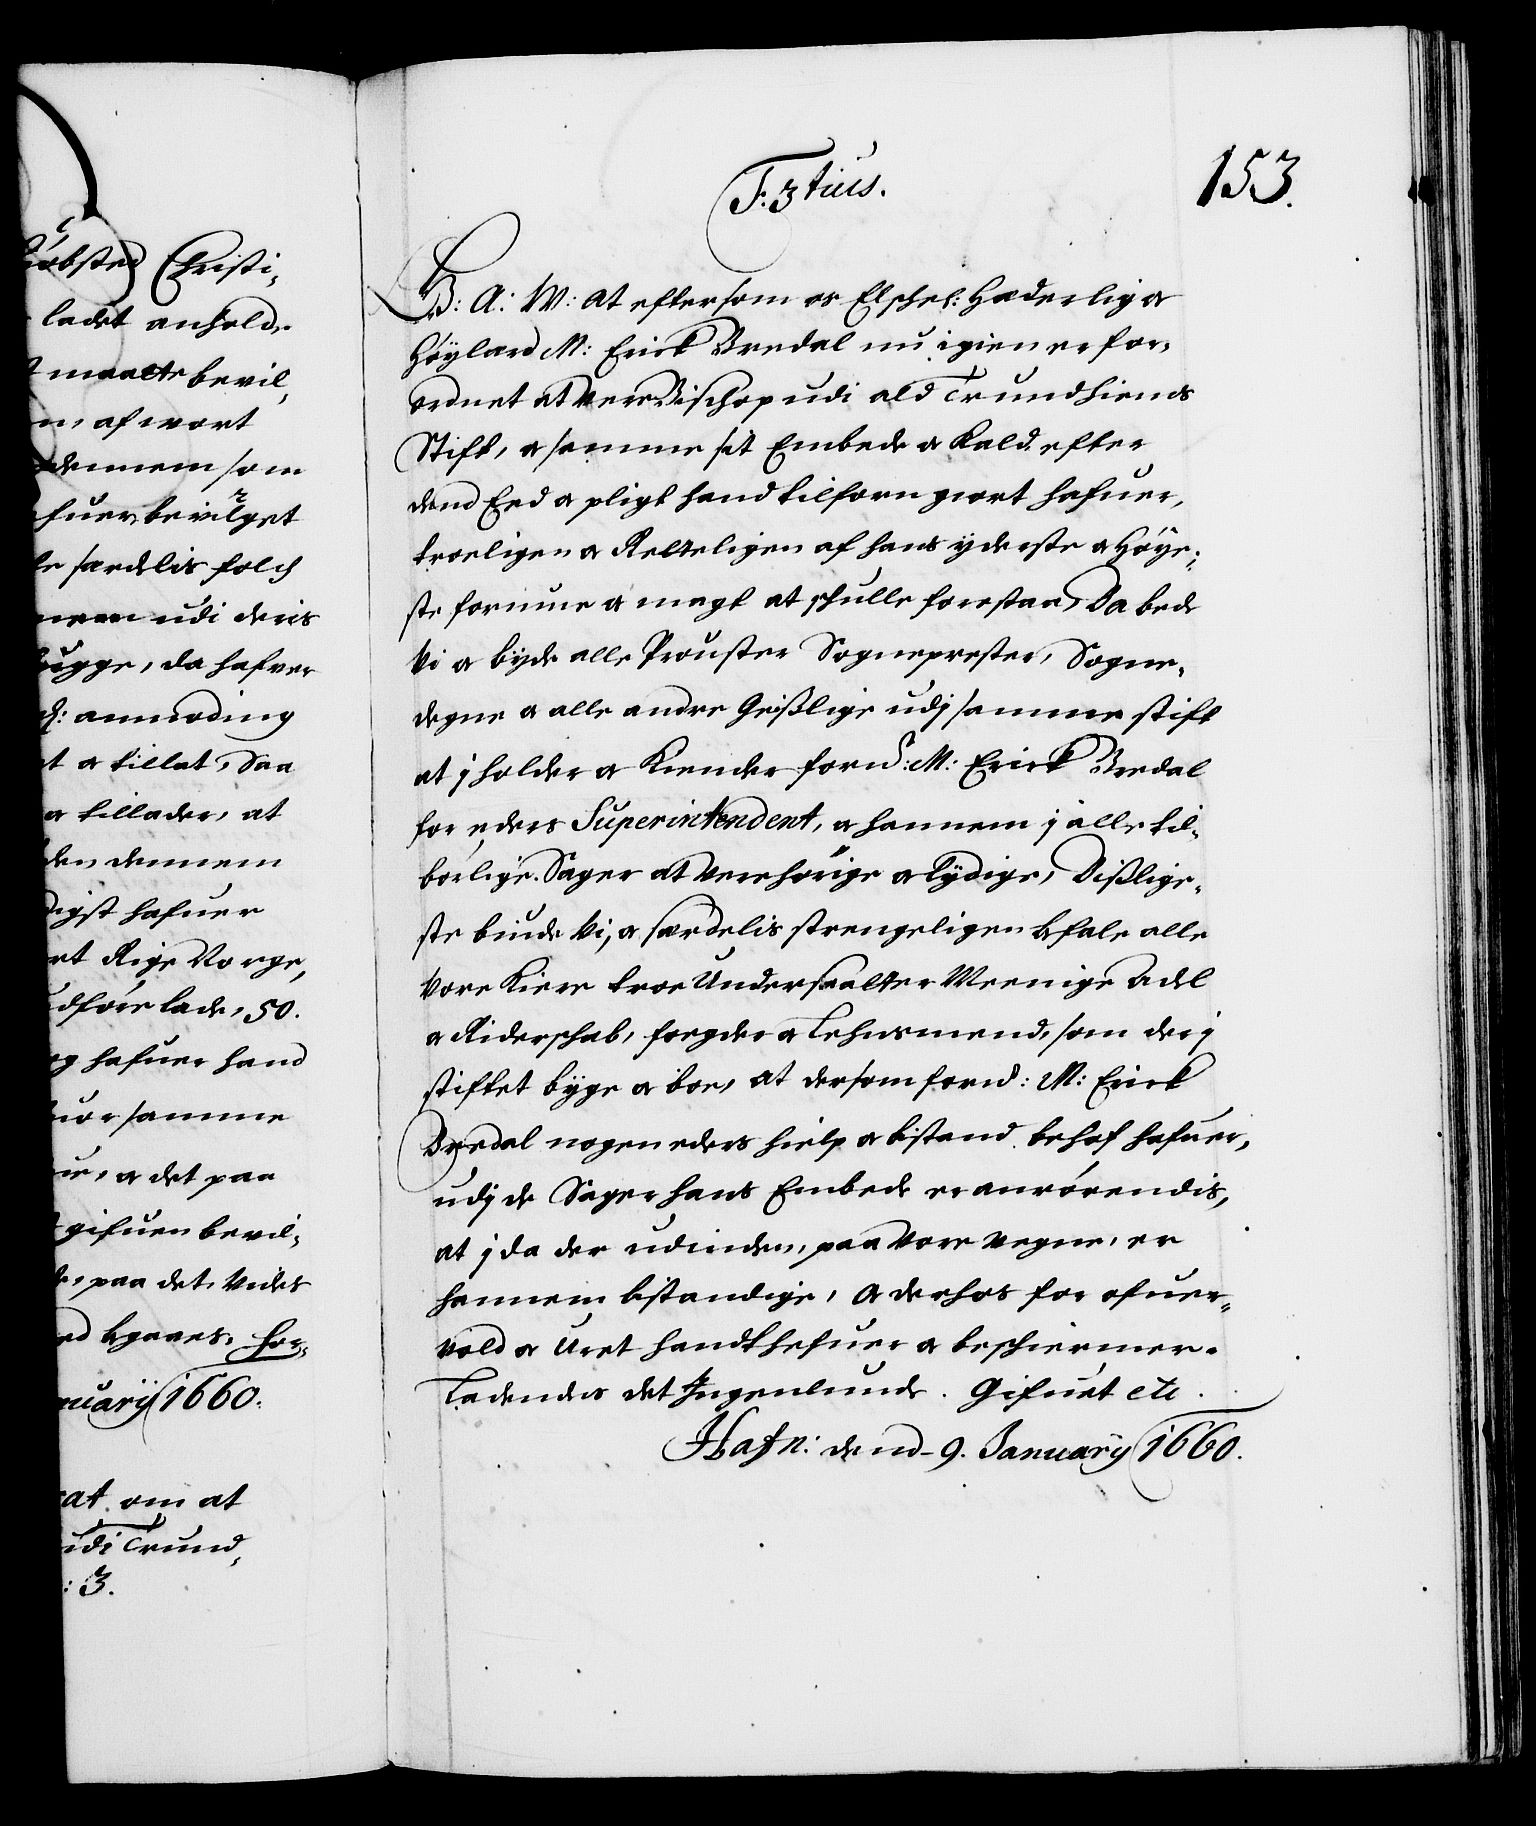 øbsted Christi,
ladet anhold,
maatte bevil,
af wort
dennem som
fuer, bevilget
særdelis folch
udi deris
ugge, da hafver
anmoding
t a tillat, Saa
a tillader, at
den dennem
digst hafuer
rt Rige Norge,
dføre lade, 50.
hafuer hand
samme
a det paa
gifuen bevil,
de, paa det, vides
For,
nuarij 1660.
om at
udi Trund,
: 3.
F: 3tius.
153.
G: A: W: At eftersom os Elschel: Hæderlig a
Høylærd M: Erick Bredal nu igien er for,
ordnet at vere Bischop udi ald Trundhiembs
Stift, a samme sit Embede a Kald efter
dend Eed a pligt hand tilforn giort hafuer,
troeligen a Retteligen af hans yderste a Høye,
ste formue a magt at schulle forestaa, Da bede
Vi a byde alle Prouster Sogneprester, Sogne,
degne a alle andre Geistlige udj samme stift
at j holder a Kiender fornd: M: Erick Bredal
for eders Superintendent, a hannem j alle til,
børlige Sager at vere hørige a lydige, Dißlige,
ste biude Vi, a særdelis strengeligen befale alle
Vore Kiere troe Undersaatter Meenige Adel
a Riderschab, fogder a Lehnsmend, som der j
stiftet byge a boe, at dersom fornd: M: Erick
Bredal nogen eders hielp a bistand behof hafuer,
udj de Sager hans Embede er anrørendis,
at j da der udinden, paa Vore vegne, er
hannem bistandige, a derhos for ofuer,
vold a Uret handthefuer a beschiermer.
Ladendes det Ingenlunde. Gifuet etc.
Hafn: dend 9. Januarij 1660.